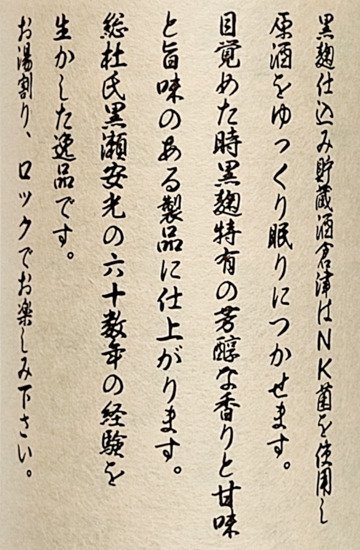 黒麹仕込み貯蔵酒倉津はNK菌を使用し
原酒をゆっくり眠りにつかせます。
目覚めた時黒麹特有の芳醇な香りと甘味
と旨味のある製品に仕上がります。
総杜氏黒瀬安光の六十数年の経験を
生かした逸品です。
お湯割り、ロックでお楽しみ下さい。